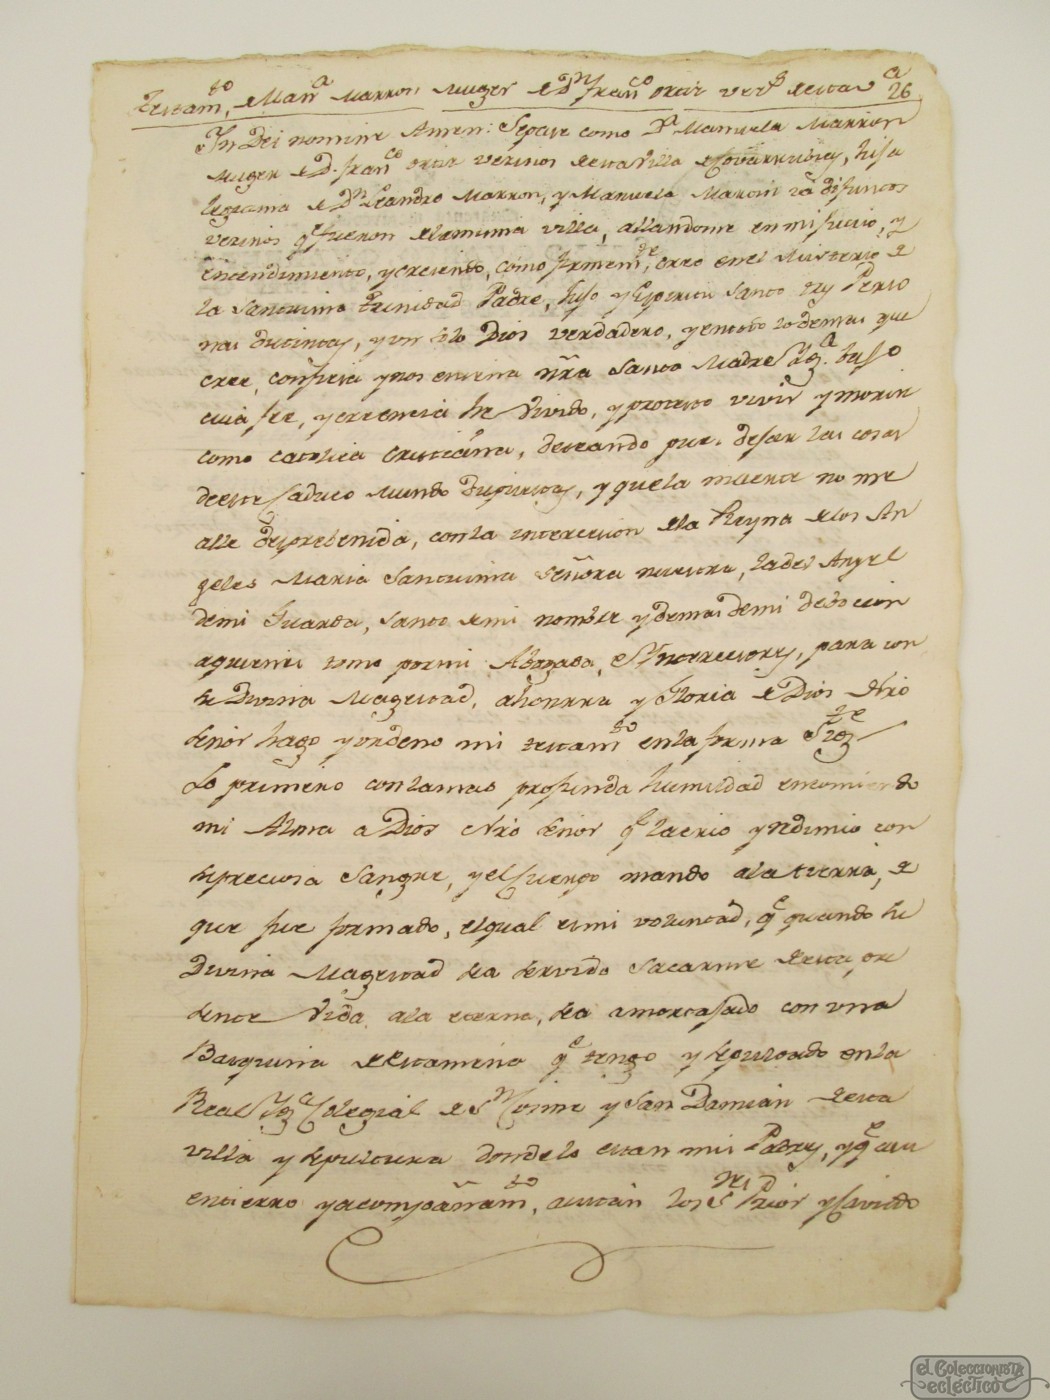 Testam.to de Man.a Marron, Muger de D.n Fran.co Ortiz vez.s de esta v.a 26
In Dei nomine Amen: Sepase como D.a Manuela Marron
Muger de D. Fran.co Ortiz vezinos de esta Villa de Covarrubias, hija
legitima de D.n Leandro Marron, y Manuela Marcin ya difuntos
vezinos q.e fueron de la misma villa, allandome en mi juicio, y
entendimiento, y creiendo, como firmem.te creo en el Misterio de
la Santisima trinidad Padre, hijo y Espiritu Santo tres Perso
nas distintas, y un solo Dios verdadero, y en todo lo demas que
cree, confiesa y nos enseña nřa Santa Madre Ygl.a bajo
cuia fee, y creencia he vivido, y protesto vivir y morir
como catolica cristiana, deseando pues dejar las cosas
de este Caduco Mundo dispuestas, y que la muerte no me
alle desprebenida, con la intercesion de la Reyna de los An
geles Maria Santisima Señora nuestra, la del Angel
de mi Guarda, Santo de mi nombre y demas de mi debocion
a quienes tomo por mi Abogada, e Yntercesores, para con
su Divina Magestad, a honrra y Gloria de Dios Nřo
Señor hago y ordeno mi testam.to en la forma Sig.te
Lo primero con la mas profunda humildad encomiendo
mi Alma a Dios Nřo Señor q.e la crio y redimio con
su preciosa Sangre, y el Cuerpo mando a la tierra, de
que fue formado, el qual es mi voluntad, q.e quando su
Divina Magestad sea servido sacarme de esta pre
sente Vida a la eterna, sea amortajado con una
Basquiña de Estameña q.e tengo y sepultado en la
Real Ygl.a Colegial de S.n Cosme y San Damian de esta
villa y sepultura donde lo estan mis Padres, y q.e a su
entierro y acompañam.to, asistan los S.res Prior y Cavildo
el Coleccionista
ecléctico